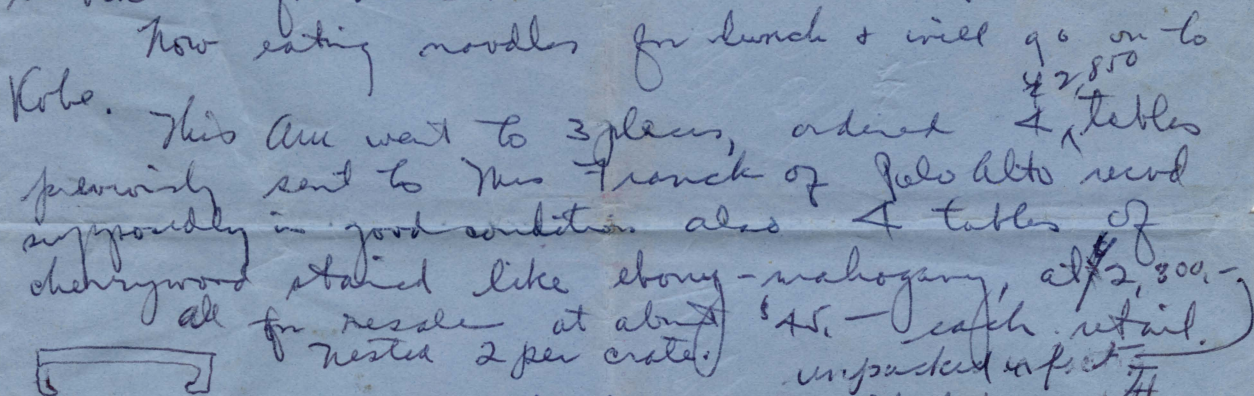 Now eating noodles for lunch + will go on to
Kobe.
¥2,850
This am went to 3 places, ordered 4 tables
previously sent to Mrs Franck of Palo Alto recvd
supposedly in good condition also 4 tables of
cherrywood stained like ebony-mahogany, at ¥2,800.-
all for resale at about $45.- each retail.
nested 2 per crate.
unpacked